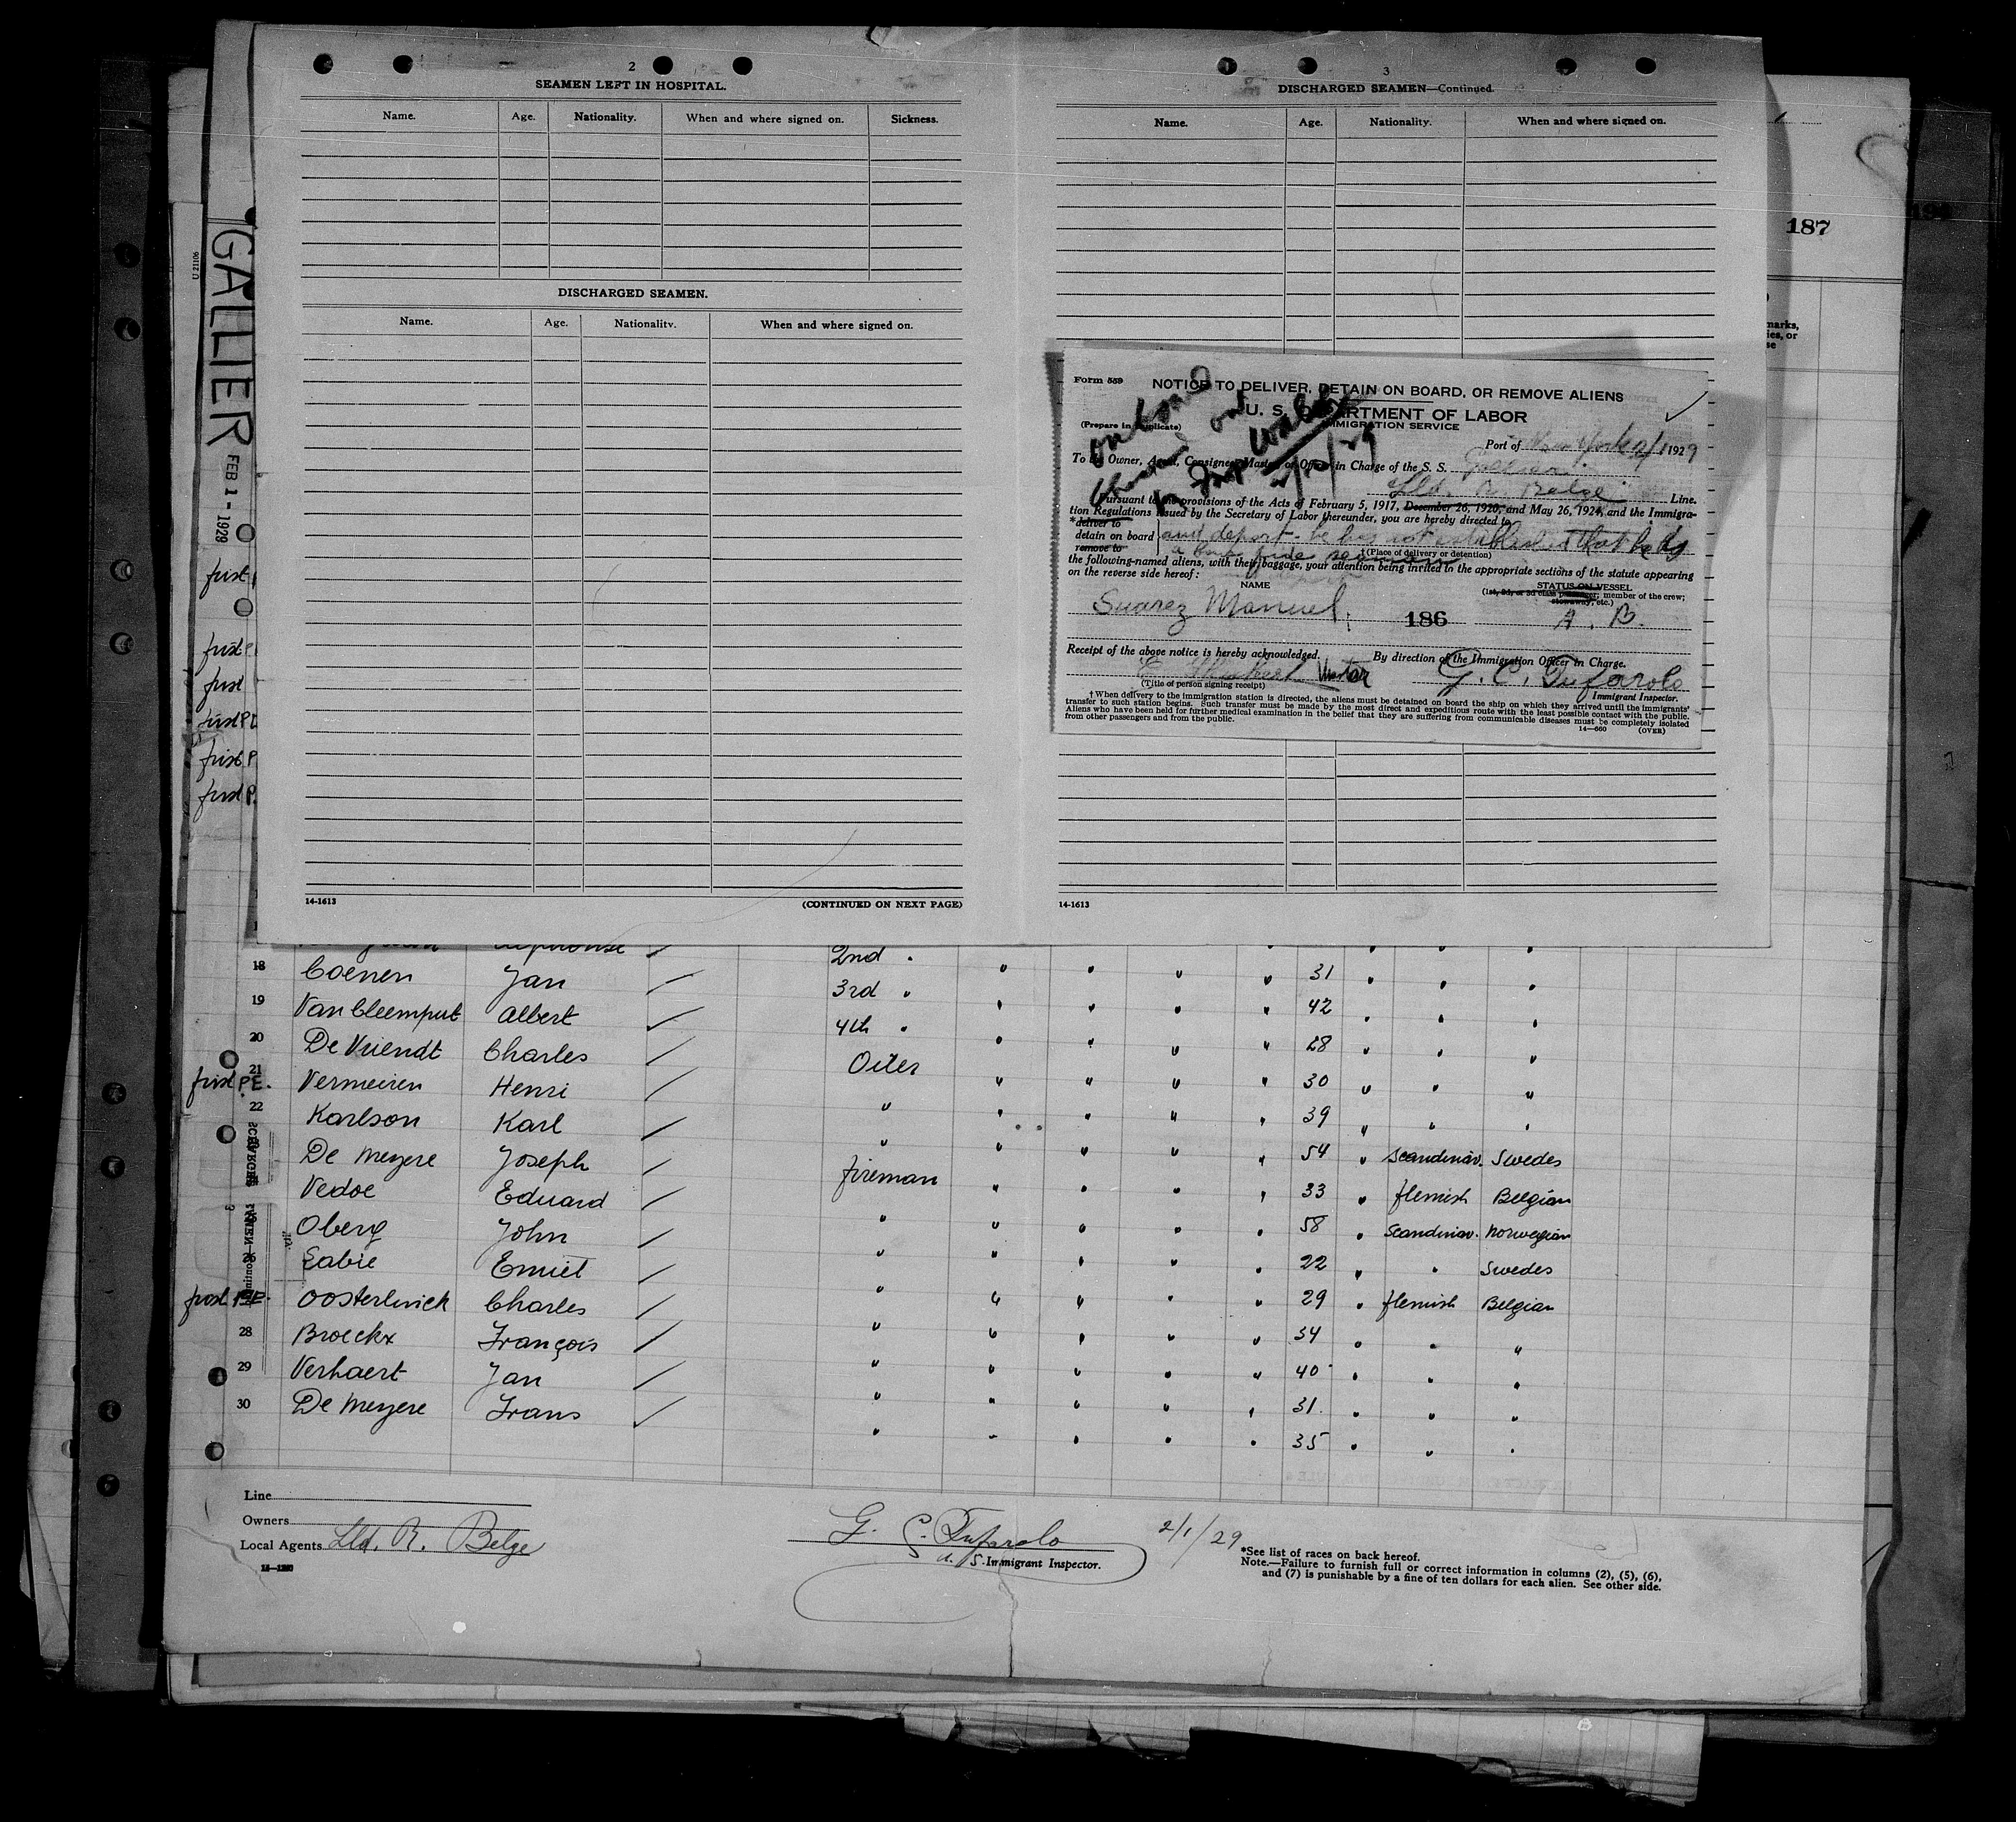 2
SEAMEN LEFT IN HOSPITAL.
Name. Age. Nationality. When and where signed on. Sickness.
DISCHARGED SEAMEN.
Name. Age. Nationality. When and where signed on.
14-1613 (CONTINUED ON NEXT PAGE)
3
DISCHARGED SEAMEN—Continued.
Name. Age. Nationality. When and where signed on.
14-1613
187
marks,
ies, or
se
U 21106
GALLIER
FEB 1 - 1929
first
first
first
first
first P
first P.
Form 559
NOTICE TO DELIVER, DETAIN ON BOARD, OR REMOVE ALIENS
U. S. DEPARTMENT OF LABOR
IMMIGRATION SERVICE
(Prepare in duplicate)
Port of New York 2/1 1929
To the Owner, Agent, Consignee, Master or Officer in Charge of the S. S. Gallier
Lld. R. Belge Line.
Pursuant to the provisions of the Acts of February 5, 1917, December 26, 1920, and May 26, 1924, and the Immigra-
tion Regulations issued by the Secretary of Labor thereunder, you are hereby directed to
*deliver to
detain on board and deport - he has not established that he is
remove to a bona fide seaman †(Place of delivery or detention)
the following-named aliens, with their baggage, your attention being invited to the appropriate sections of the statute appearing
on the reverse side hereof:
NAME STATUS ON VESSEL
(1st, 2d, or 3d class passenger; member of the crew;
stowaway, etc.)
Suarez Manuel 186 A. B.
Receipt of the above notice is hereby acknowledged. By direction of the Immigration Officer in Charge.
Master G. C. Tufarolo
(Title of person signing receipt) Immigrant Inspector.
†When delivery to the immigration station is directed, the aliens must be detained on board the ship on which they arrived until the immigrants'
transfer to such station begins. Such transfer must be made by the most direct and expeditious route with the least possible contact with the public.
Aliens who have been held for further medical examination in the belief that they are suffering from communicable diseases must be completely isolated
from other passengers and from the public.
14—660 (OVER)
Alphonse 2nd "
18 Coenen Jan 3rd " " " " " 31 " " "
19 Van Cleemput Albert 4th " " " " " 42 " " "
20 De Vriendt Charles Oiler " " " " 28 " " "
first P.E. 21 Vermeiren Henri " " " " " 30 " " "
22 Karlson Karl " " " " " 39 " " "
De Meyere Joseph fireman " " " " 54 " Scandinav. Swedes
Vedoe Eduard " " " " " 33 " flemish Belgian
Oberg John " " " " " 58 " Scandinav. Norwegian
26 Eabie Emiel " " " " " 22 " " Swedes
first P.E. Oosterlinck Charles " " " " " 29 " flemish Belgian
28 Broeckx François " " " " " 34 " " "
29 Verhaert Jan " " " " " 40 " " "
30 De Meyere Frans " " " " " 31 " " "
35 " " "
Line
Owners
Local Agents Lld. R. Belge
G. C. Tufarolo 2/1/29
U. S. Immigrant Inspector.
*See list of races on back hereof.
Note.—Failure to furnish full or correct information in columns (2), (5), (6),
and (7) is punishable by a fine of ten dollars for each alien. See other side.